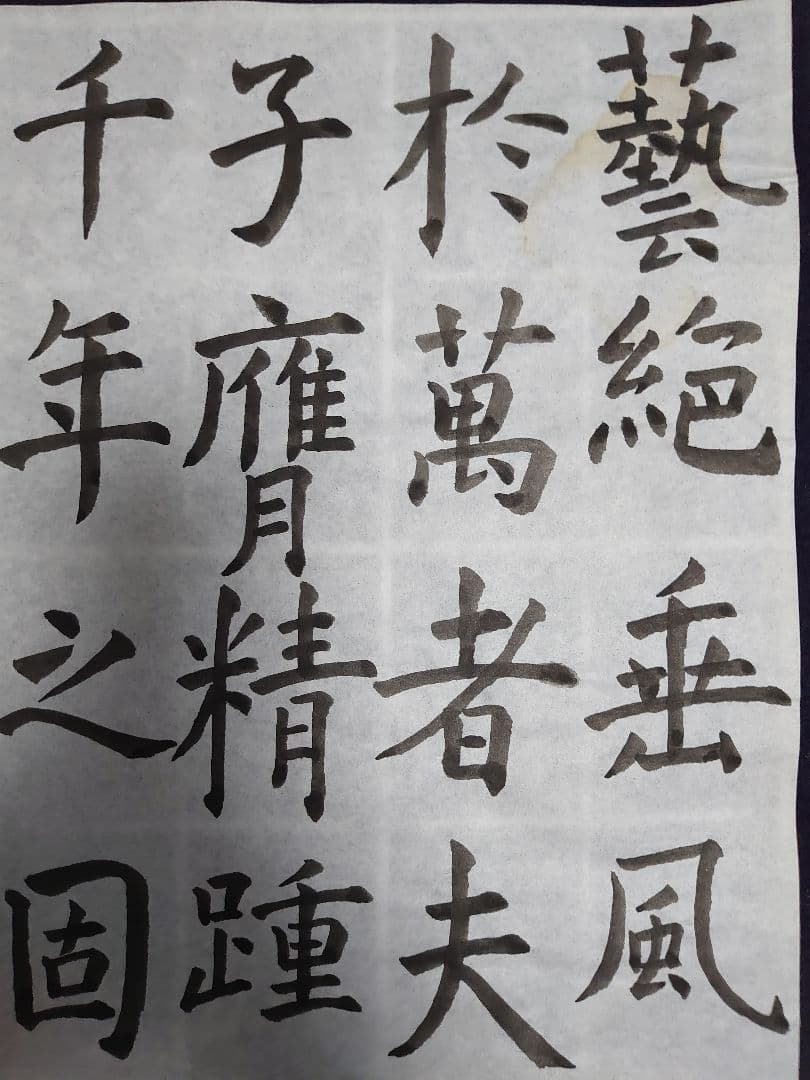 藝絕垂風
於萬者夫
子膺精踵
千年之固